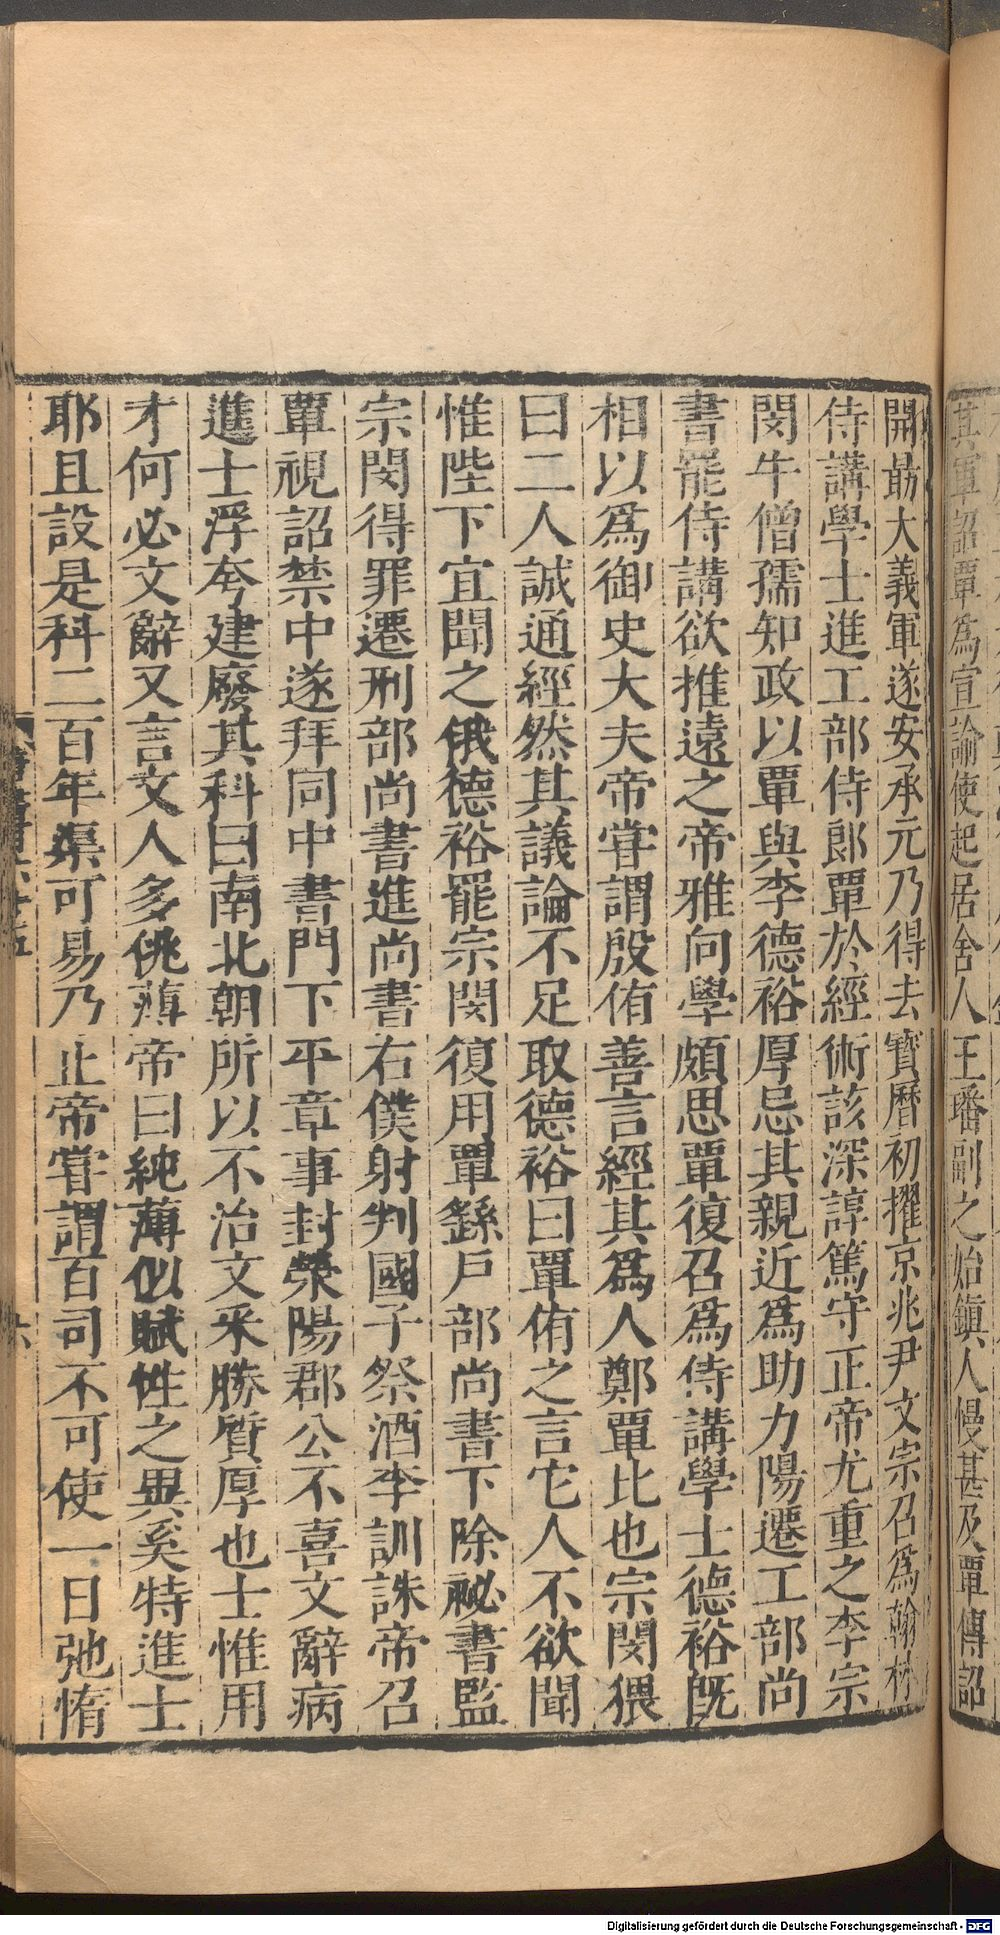 其軍詔覃爲宣諭使起居舍人王璠副之始鎭人慢甚及覃傳詔
開勗大義軍遂安承元乃得去寶曆初擢京兆尹文宗召爲翰林
侍講學士進工部侍郎覃於經術該深諄篤守正帝尤重之李宗
閔牛僧孺知政以覃與李德裕厚忌其親近爲助力陽遷工部尚
書罷侍講欲推遠之帝雅向學頗思覃復召爲侍講學士德裕旣
相以爲御史大夫帝甞謂殷侑善言經其爲人鄭覃比也宗閔猥
曰二人誠通經然其議論不足取德裕曰覃侑之言它人不欲聞
惟陛下宜聞之俄德裕罷宗閔復用覃繇戶部尚書下除祕書監
宗閔得罪遷刑部尚書進尚書右僕射判國子祭酒李訓誅帝召
覃視詔禁中遂拜同中書門下平章事封滎陽郡公不喜文辭病
進士浮夸建廢其科曰南北朝所以不治文采勝質厚也士惟用
才何必文辭又言文人多佻薄帝曰純薄似賦性之異奚特進士
耶且設是科二百年渠可易乃止帝甞謂百司不可使一日弛惰
六
Digitalisierung gefördert durch die Deutsche Forschungsgemeinschaft - DFG